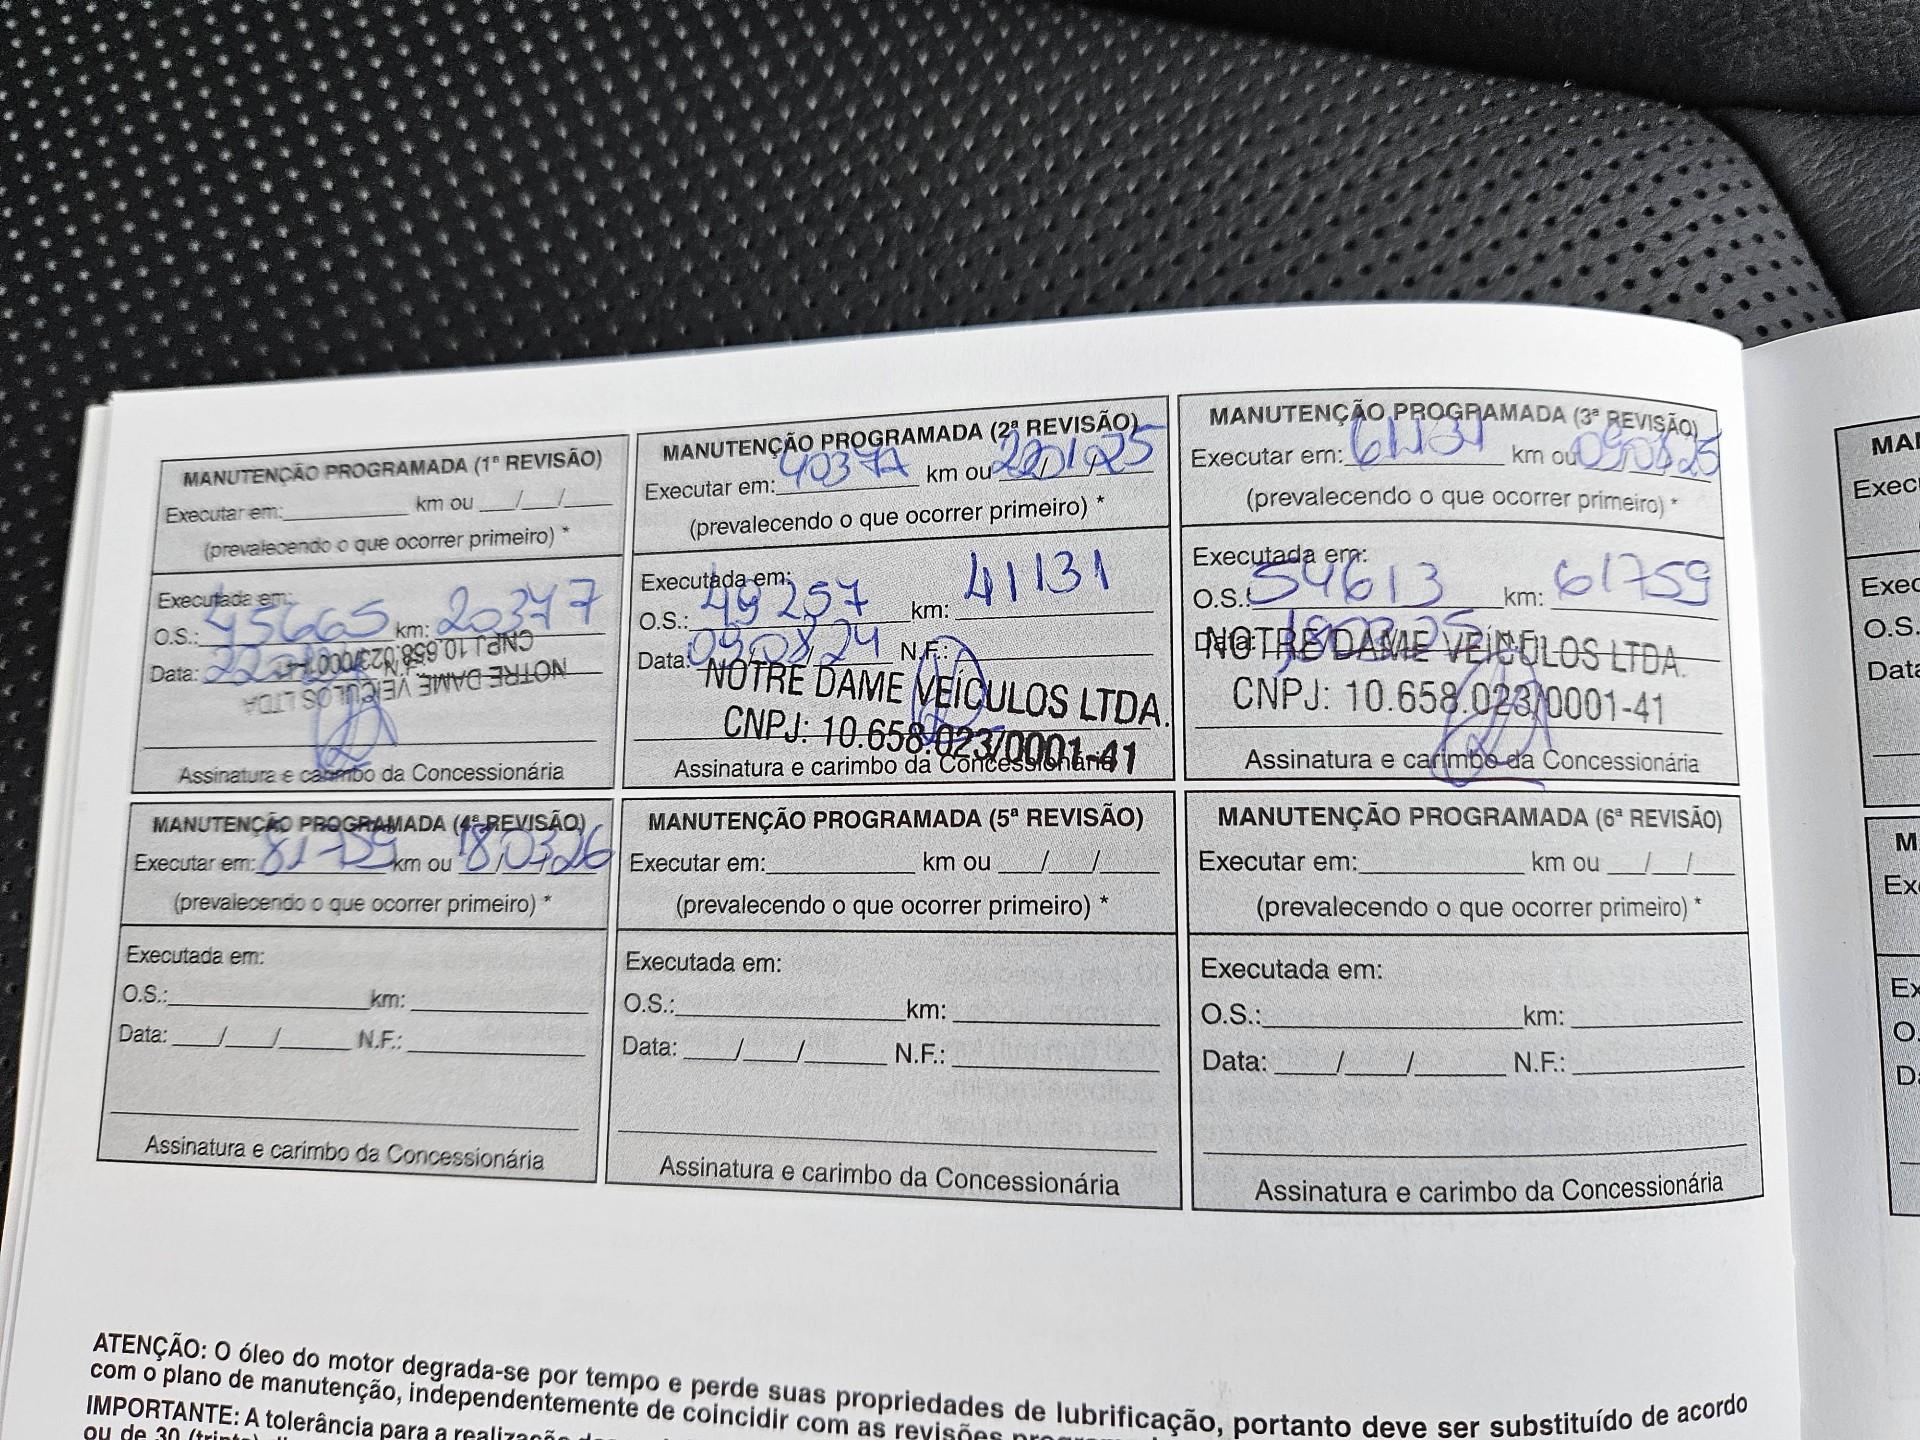 MANUTENÇÃO PROGRAMADA (1ª REVISÃO)
Executar em: km ou / /
(prevalecendo o que ocorrer primeiro) *
Executada em:
O.S.: 45665 km: 20377
Data: N.F.:
CNPJ 10.658.023/0001-41
NOTRE DAME VEÍCULOS LTDA
Assinatura e carimbo da Concessionária
MANUTENÇÃO PROGRAMADA (2ª REVISÃO)
Executar em: 40377 km ou 22/01/25
(prevalecendo o que ocorrer primeiro) *
Executada em:
O.S.: 49257 km: 41131
Data: 09/08/24 N.F.:
NOTRE DAME VEÍCULOS LTDA.
CNPJ: 10.658.023/0001-41
Assinatura e carimbo da Concessionária
MANUTENÇÃO PROGRAMADA (3ª REVISÃO)
Executar em: 61131 km ou 09/08/25
(prevalecendo o que ocorrer primeiro) *
Executada em:
O.S.: 54613 km: 61759
Data:
NOTRE DAME VEÍCULOS LTDA.
CNPJ: 10.658.023/0001-41
Assinatura e carimbo da Concessionária
MANUTENÇÃO PROGRAMADA (4ª REVISÃO)
Executar em: 81759 km ou 18/03/26
(prevalecendo o que ocorrer primeiro) *
Executada em:
O.S.: km:
Data: / / N.F.:
Assinatura e carimbo da Concessionária
MANUTENÇÃO PROGRAMADA (5ª REVISÃO)
Executar em: km ou / /
(prevalecendo o que ocorrer primeiro) *
Executada em:
O.S.: km:
Data: / / N.F.:
Assinatura e carimbo da Concessionária
MANUTENÇÃO PROGRAMADA (6ª REVISÃO)
Executar em: km ou / /
(prevalecendo o que ocorrer primeiro) *
Executada em:
O.S.: km:
Data: / / N.F.:
Assinatura e carimbo da Concessionária
ATENÇÃO: O óleo do motor degrada-se por tempo e perde suas propriedades de lubrificação, portanto deve ser substituído de acordo
com o plano de manutenção, independentemente de coincidir com as revisões
IMPORTANTE: A tolerância para a
ou de 30